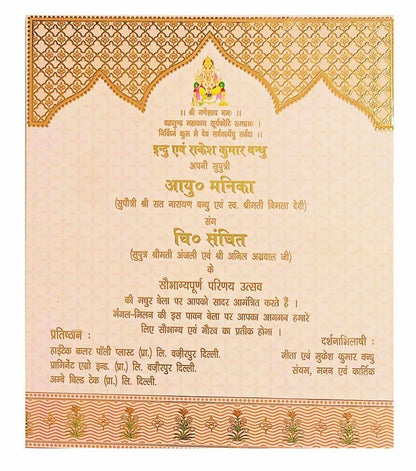 ।। श्री गणेशाय नमः ।।
वक्रतुण्ड महाकाय सूर्यकोटि समप्रभः ।
निर्विघ्नं कुरू मे देव सर्वकार्येषु सर्वदा ।।
इन्दु एवं राकेश कुमार बन्धु
अपनी सुपुत्री
आयु० मनिका
(सुपौत्री श्री सत नारायण बन्धु एवं स्व. श्रीमती विमला देवी)
संग
चि० संचित
(सुपुत्र श्रीमती अंजली एवं श्री अनिल अग्रवाल जी)
के
सौभाग्यपूर्ण परिणय उत्सव
की मधुर बेला पर आपको सादर आमंत्रित करते हैं ।
मंगल-मिलन की इस पावन बेला पर आपका आगमन हमारे
लिए सौभाग्य एवं गौरव का प्रतीक होगा ।
प्रतिष्ठान :
हाईटेक कलर पॉली प्लास्ट (प्रा.) लि. वज़ीरपुर दिल्ली.
प्रामिनेंट एग्रो इन्ड. (प्रा.) लि. वज़ीरपुर दिल्ली.
अम्बे बिल्ड टेक (प्रा.) लि. दिल्ली.
दर्शनाभिलाषी :
गीता एवं मुकेश कुमार बन्धु
संयम, मनन एवं कार्तिक